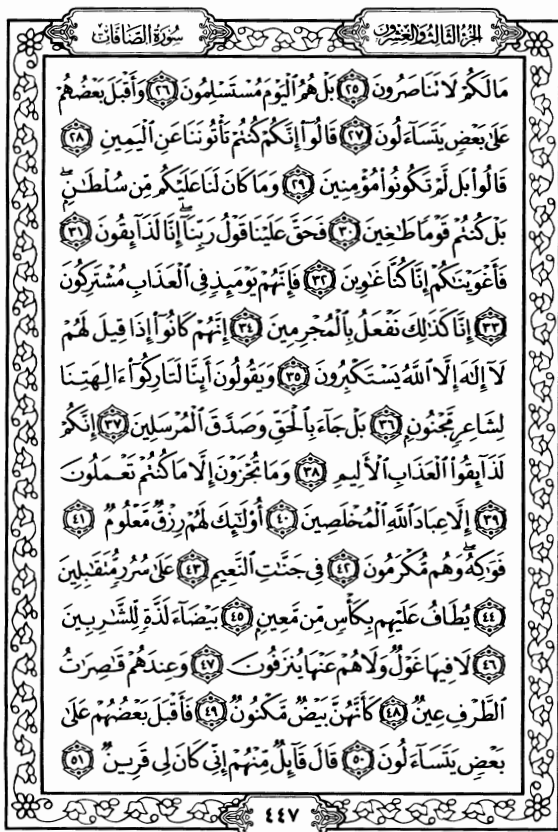 سُورَةُ الصَّافَّاتِ
الجُزْءُ الثَّالِثُ وَالعِشْرُونَ
مَا لَكُمْ لَا تَنَاصَرُونَ ٢٥ بَلْ هُمُ الْيَوْمَ مُسْتَسْلِمُونَ ٢٦ وَأَقْبَلَ بَعْضُهُمْ
عَلَىٰ بَعْضٍ يَتَسَاءَلُونَ ٢٧ قَالُوا إِنَّكُمْ كُنتُمْ تَأْتُونَنَا عَنِ الْيَمِينِ ٢٨
قَالُوا بَل لَّمْ تَكُونُوا مُؤْمِنِينَ ٢٩ وَمَا كَانَ لَنَا عَلَيْكُم مِّن سُلْطَٰنٍۖ
بَلْ كُنتُمْ قَوْمًا طَٰغِينَ ٣٠ فَحَقَّ عَلَيْنَا قَوْلُ رَبِّنَاۖ إِنَّا لَذَآئِقُونَ ٣١
فَأَغْوَيْنَٰكُمْ إِنَّا كُنَّا غَٰوِينَ ٣٢ فَإِنَّهُمْ يَوْمَئِذٍ فِي الْعَذَابِ مُشْتَرِكُونَ
٣٣ إِنَّا كَذَٰلِكَ نَفْعَلُ بِالْمُجْرِمِينَ ٣٤ إِنَّهُمْ كَانُوا إِذَا قِيلَ لَهُمْ
لَآ إِلَٰهَ إِلَّا اللَّهُ يَسْتَكْبِرُونَ ٣٥ وَيَقُولُونَ أَئِنَّا لَتَارِكُوا ءَالِهَتِنَا
لِشَاعِرٍ مَّجْنُونٍ ٣٦ بَلْ جَآءَ بِالْحَقِّ وَصَدَّقَ الْمُرْسَلِينَ ٣٧ إِنَّكُمْ
لَذَآئِقُوا الْعَذَابِ الْأَلِيمِ ٣٨ وَمَا تُجْزَوْنَ إِلَّا مَا كُنتُمْ تَعْمَلُونَ
٣٩ إِلَّا عِبَادَ اللَّهِ الْمُخْلَصِينَ ٤٠ أُو۟لَٰٓئِكَ لَهُمْ رِزْقٌ مَّعْلُومٌ ٤١
فَوَٰكِهُۖ وَهُم مُّكْرَمُونَ ٤٢ فِي جَنَّٰتِ النَّعِيمِ ٤٣ عَلَىٰ سُرُرٍ مُّتَقَٰبِلِينَ
٤٤ يُطَافُ عَلَيْهِم بِكَأْسٍ مِّن مَّعِينٍ ٤٥ بَيْضَآءَ لَذَّةٍ لِّلشَّٰرِبِينَ
٤٦ لَا فِيهَا غَوْلٌ وَلَا هُمْ عَنْهَا يُنزَفُونَ ٤٧ وَعِندَهُمْ قَٰصِرَٰتُ
الطَّرْفِ عِينٌ ٤٨ كَأَنَّهُنَّ بَيْضٌ مَّكْنُونٌ ٤٩ فَأَقْبَلَ بَعْضُهُمْ عَلَىٰ
بَعْضٍ يَتَسَآءَلُونَ ٥٠ قَالَ قَآئِلٌ مِّنْهُمْ إِنِّي كَانَ لِي قَرِينٌ ٥١
٤٤٧